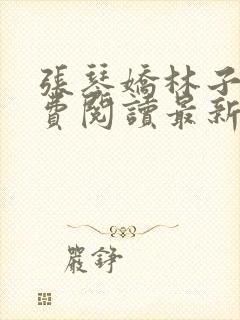 張琴嬌林子
費閱讀最新
嚴錚